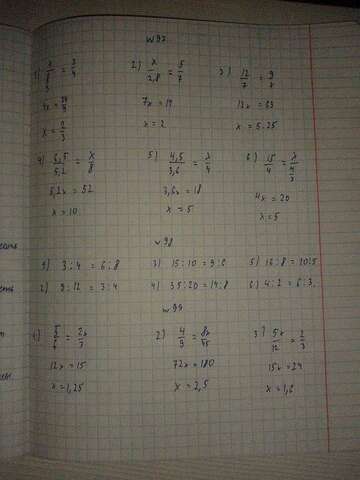 №97
2) x/2,8 = 5/7
7x = 14
x = 2
3) 12/7 = 9/x
12x = 63
x = 5.25
4) 6,5/5,2 = x/8
5,2x = 52
x = 10
5) 4,5/3,6 = x/4
3,6x = 18
x = 5
4x = 20
x = 5
№98
1) 3:4 = 6:8
2) 9:12 = 3:4
3) 15:10 = 9:6
4) 35:20 = 14:8
5) 16:8 = 10:5
6) 4:2 = 6:3
№99
12x = 15
x = 1,25
2) 4/9 = 8x/45
72x = 180
x = 2,5
3) 5x/12 = 2/3
15x = 24
x = 1,6